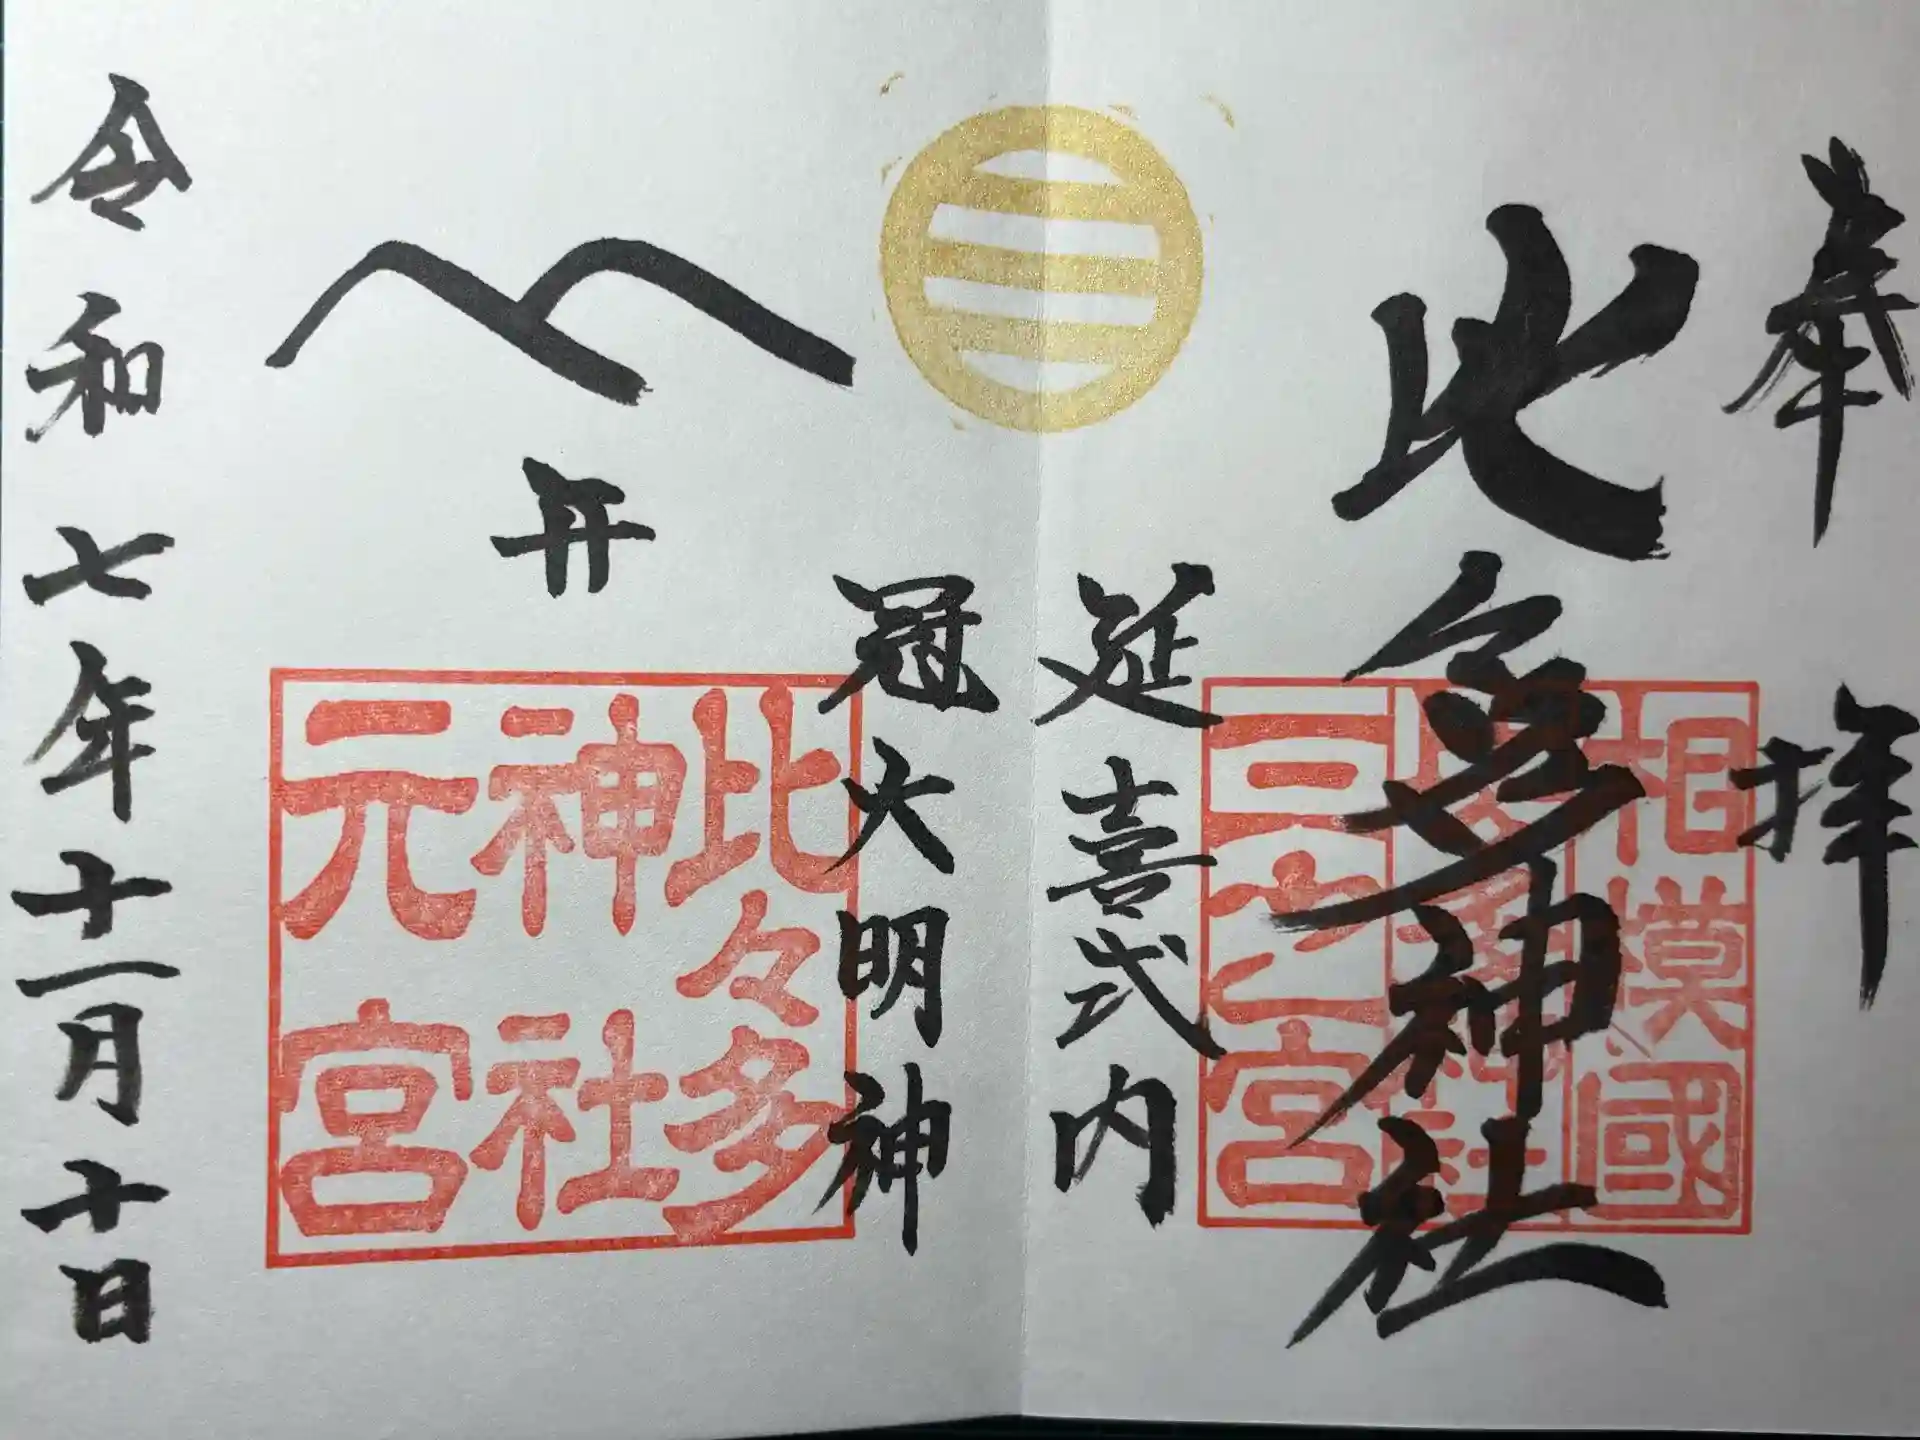 奉拝
比多神社
相模國
三之宮
延喜式内
冠大明神
比々多
神社
元宮
令和七年十一月十日